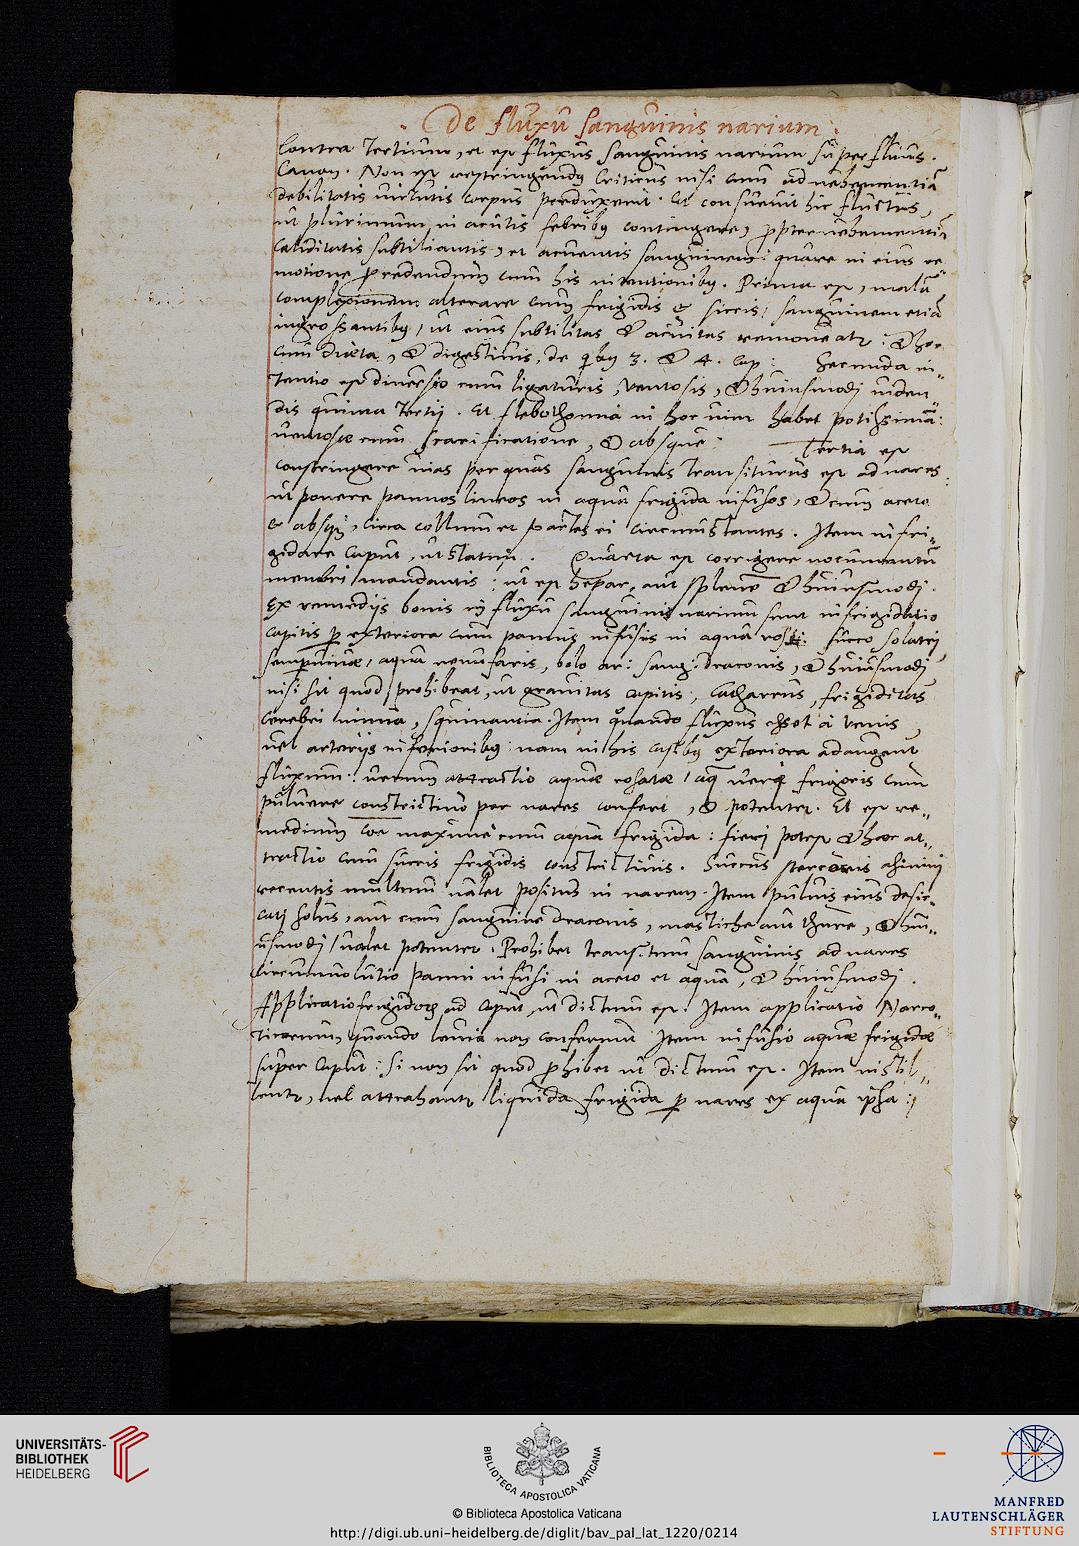 De fluxu sanguinis narium.
Contra Tertium, et est fluxus sanguinis narium superfluus.
Canon. Non est restringendus Criticus nisi cum ad uehementiã
debilitatis uirtutis corpus perduxerit. Et consueuit hic fluctus,
ut plurimum, in acutis febribus contingere, propter uehementiã
caliditatis subtiliantis, et acuentis sanguinem: quare in eius re
motione procedendum cum his intentionibus. Prima est, malã
complexionem alterare cum frigidis & siccis, sanguinem etiã
ingrossantibus, ut eius subtilitas & acuitas remoueatur: & hoc
cum diæta, & digestiuis, de quibus 3. & 4. cap: Secunda in-
tentio est diuersio cum ligaturis, uentosis, & huiusmodi
dis Tertij. Et flebothomia in hoc uim habet potissimã:
uentosæ cum scarificatione, & absque. Tertia est
constringere uias per quas sanguinis transiturus est ad nares
ut ponere pannos lineos in aqua frigida infusos, & cum aceto
& absque, circa collum et partes ei circumstantes. Item infri-
gidare caput, ut statim. Quarta est corrigere nocumentũ
membri mandantis: ut est hepar, aut splen & huiusmodi.
Ex remedijs bonis in fluxu sanguinis narium sunt infrigidatio
capitis per exteriora cum pannis infusis in aqua ros: succo solatri
semperuiuæ, aqua nenufaris, bolo ar: sang: draconis, & huiusmodi
nisi sit quod prohibeat, ut grauitas capitis, Catharrus, frigiditas
cerebri nimia, squinantia. Item quando fluxus esset à uenis
uel arterijs inferioribus: nam in his casibus exteriora adaugent
fluxum: uerum attractio aquæ rosatæ, frigoris cum
puluere constrictiuo per nares confert, & potenter. Et est re-
medium maxime cum aqua frigida: fieri potest & hæc at-
tractio cum succis frigidis constrictiuis. Succus stercoris asinini
recentis multum ualet positus in narem. Item puluis eius desic-
cati solus, aut cum sanguine draconis, mastiche aut thure, & hui-
usmodi, ualet potenter. Prohibet transitum sanguinis ad nares
circumuolutio panni infusi in aceto et aqua, & huiusmodi.
Applicatio frigidorum ad caput, ut dictum est. Item applicatio Narco-
ticorum, quando leuia non conferunt. Item infusio aquæ frigidæ
super caput: si non sit quod prohibet ut dictum est. Item instil-
lentur, uel attrahantur liquida frigida per nares ex aqua ipsa:
UNIVERSITÄTS-
BIBLIOTHEK
HEIDELBERG
BIBLIOTECA APOSTOLICA VATICANA
© Biblioteca Apostolica Vaticana
http://digi.ub.uni-heidelberg.de/diglit/bav_pal_lat_1220/0214
MANFRED
LAUTENSCHLÄGER
STIFTUNG